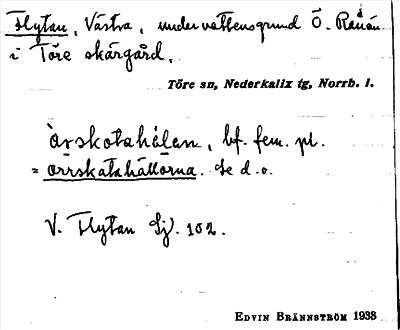 Flytan, Västra, undervattensgrund Ö. Rånön
i Töre skärgård.
Töre sn, Nederkalix tg, Norrb. l.
àrskotahälan, bf. fem. pl.
= orrskatahällorna. Se d.o.
V. Flytan Sj. 102.
EDVIN BRÄNNSTRÖM 1938